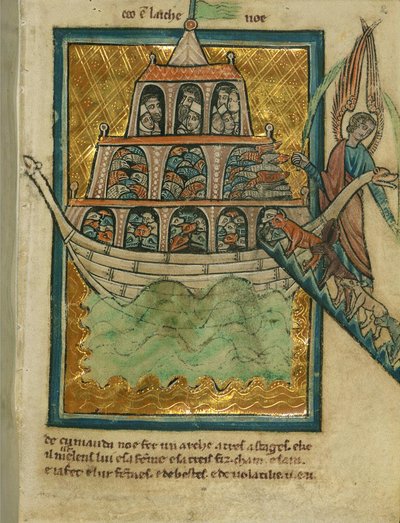 ceo est larche noe
de cumanda noe fer un arche a treis estages. e ke
il meist enz lui e sa feme e sa treis fiz. cham. e sem.
e iafet e lur femes. e de bestes. e de volatilie. u. e u.